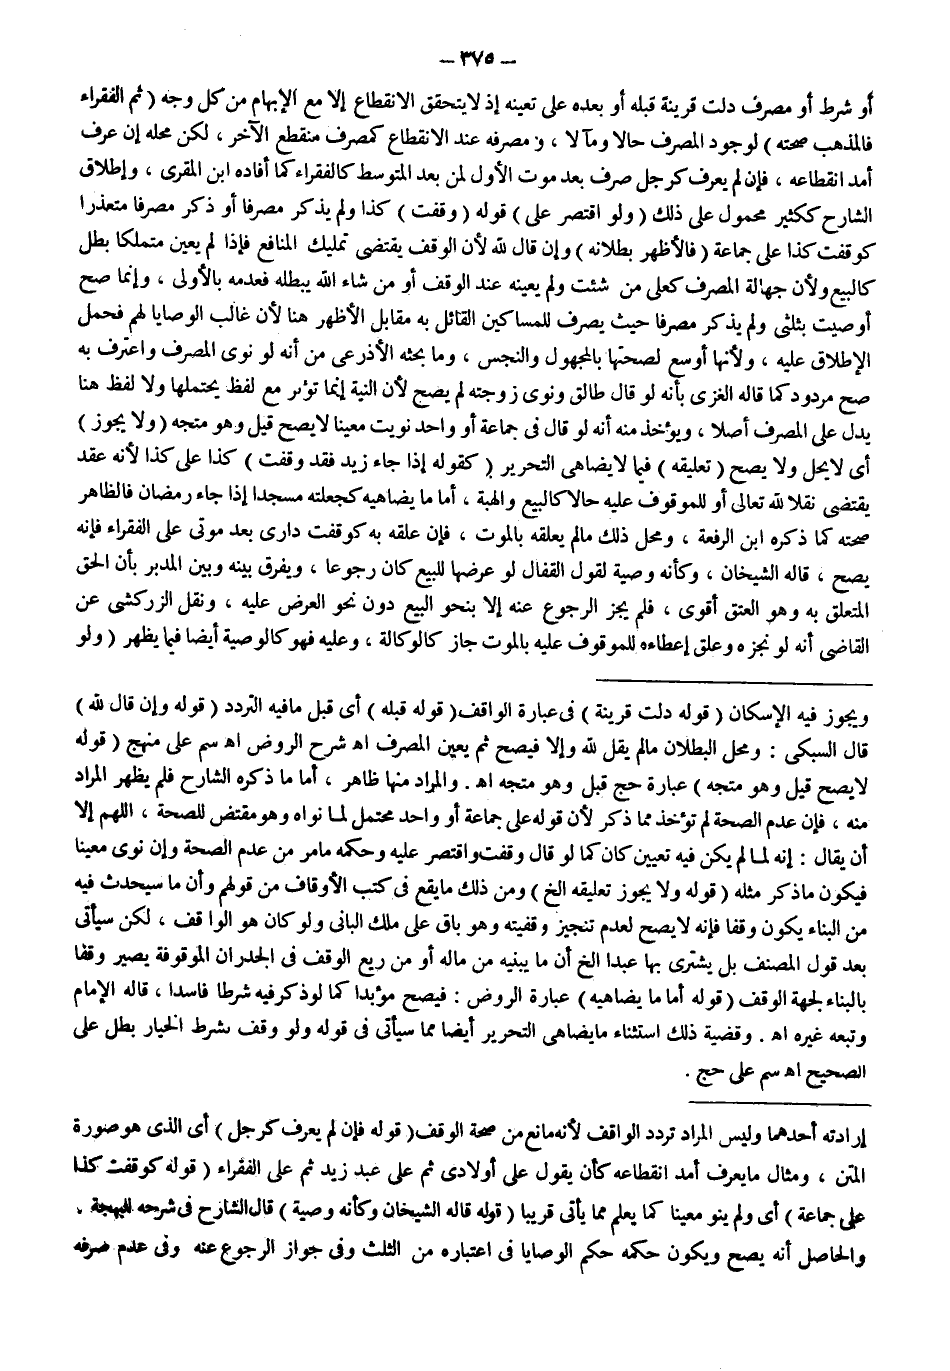 – ٣٧٥ –
أو شرط أو مصرف دلت قرينة قبله أو بعده على تعينه إذ لايتحقق الانقطاع إلا مع الإبهام من كل وجه ( ثم الفقراء
فالمذهب صحته ) لوجود المصرف حالا ومآلا ، ومصرفه عند الانقطاع كمصرف منقطع الآخر ، لكن محله إن عرف
أمد انقطاعه ، فإن لم يعرف كرجل صرف بعد موت الأول لمن بعد المتوسط كالفقراء كما أفاده ابن المقرى ، وإطلاق
الشارح ككثير محمول على ذلك ( ولو اقتصر على ) قوله ( وقفت ) كذا ولم يذكر مصرفا أو ذكر مصرفا متعذرا
كوقفت كذا على جماعة ( فالأظهر بطلانه ) وإن قال لله لأن الوقف يقتضى تمليك المنافع فإذا لم يعين متملكا بطل
كالبيع ولأن جهالة المصرف كعلى من شئت ولم يعينه عند الوقف أو من شاء الله يبطله فعدمه بالأولى ، وإنما صح
أوصيت بثلثى ولم يذكر مصرفا حيث يصرف للمساكين القائل به مقابل الأظهر هنا لأن غالب الوصايا لهم فحمل
الإطلاق عليه ، ولأنها أوسع لصحتها بالمجهول والنجس ، وما بحثه الأذرعى من أنه لو نوى المصرف واعترف به
صح مردود كما قاله الغزى بأنه لو قال طالق ونوى زوجته لم يصح لأن النية إنما تؤثر مع لفظ يحتملها ولا لفظ هنا
يدل على المصرف أصلا ، ويؤخذ منه أنه لو قال فى جماعة أو واحد نويت معينا لايصح قيل وهو متجه ( ولا يجوز )
أى لايحل ولا يصح ( تعليقه ) فيما لايضاهى التحرير ( كقوله إذا جاء زيد فقد وقفت ) كذا على كذا لأنه عقد
يقتضى نقلا لله تعالى أو للموقوف عليه حالا كالبيع والهبة ، أما ما يضاهيه كجعلته مسجدا إذا جاء رمضان فالظاهر
صحته كما ذكره ابن الرفعة ، ومحل ذلك مالم يعلقه بالموت ، فإن علقه به كوقفت دارى بعد موتى على الفقراء فإنه
يصح ، قاله الشيخان ، وكأنه وصية لقول القفال لو عرضها للبيع كان رجوعا ، ويفرق بينه وبين المدبر بأن الحق
المتعلق به وهو العتق أقوى ، فلم يجز الرجوع عنه إلا بنحو البيع دون نحو العرض عليه ، ونقل الزركشى عن
القاضى أنه لو نجزه وعلق إعطاءه للموقوف عليه بالموت جاز كالوكالة ، وعليه فهو كالوصية أيضا فيما يظهر ( ولو
ويجوز فيه الإسكان ( قوله دلت قرينة ) فى عبارة الواقف ( قوله قبله ) أى قبل مافيه التردد ( قوله وإن قال لله )
قال السبكى : ومحل البطلان مالم يقل لله وإلا فيصح ثم يعين المصرف اه شرح الروض اه سم على منهج ( قوله
لايصح قيل وهو متجه ) عبارة حج قبل وهو متجه اه . والمراد منها ظاهر ، أما ما ذكره الشارح فلم يظهر المراد
منه ، فإن عدم الصحة لم تؤخذ مما ذكر لأن قوله على جماعة أو واحد محتمل لما نواه وهو مقتض للصحة ، اللهم إلا
أن يقال : إنه لما لم يكن فيه تعيين كان كما لو قال وقفت واقتصر عليه وحكمه مامر من عدم الصحة وإن نوى معينا
فيكون ماذكر مثله ( قوله ولا يجوز تعليقه الخ ) ومن ذلك مايقع فى كتب الأوقاف من قولهم وأن ما سيحدث فيه
من البناء يكون وقفا فإنه لايصح لعدم تنجيز وقفيته وهو باق على ملك البانى ولو كان هو الواقف ، لكن سيأتى
بعد قول المصنف بل يشترى بها عبدا الخ أن ما يبنيه من ماله أو من ريع الوقف فى الجدران الموقوفة يصير وقفا
بالبناء لجهة الوقف ( قوله أما ما يضاهيه ) عبارة الروض : فيصح مؤبدا كما لوذكر فيه شرطا فاسدا ، قاله الإمام
وتبعه غيره اه . وقضية ذلك استثناء مايضاهى التحرير أيضا مما سيأتى فى قوله ولو وقف بشرط الخيار بطل على
الصحيح اه سم على حج .
إرادته أحدهما وليس المراد تردد الواقف لأنه مانع من صحة الوقف ( قوله فإن لم يعرف كرجل ) أى الذى هو صورة
المتن ، ومثال مايعرف أمد انقطاعه كأن يقول على أولادى ثم على عبد زيد ثم على الفقراء ( قوله كوقفت كذا
على جماعة ) أى ولم ينو معينا كما يعلم مما يأتى قريبا ( قوله قاله الشيخان وكأنه وصية ) قال الشارح فى شرحه للبهجة ،
والحاصل أنه يصح ويكون حكمه حكم الوصايا فى اعتباره من الثلث وفى جواز الرجوع عنه وفى عدم صرفه